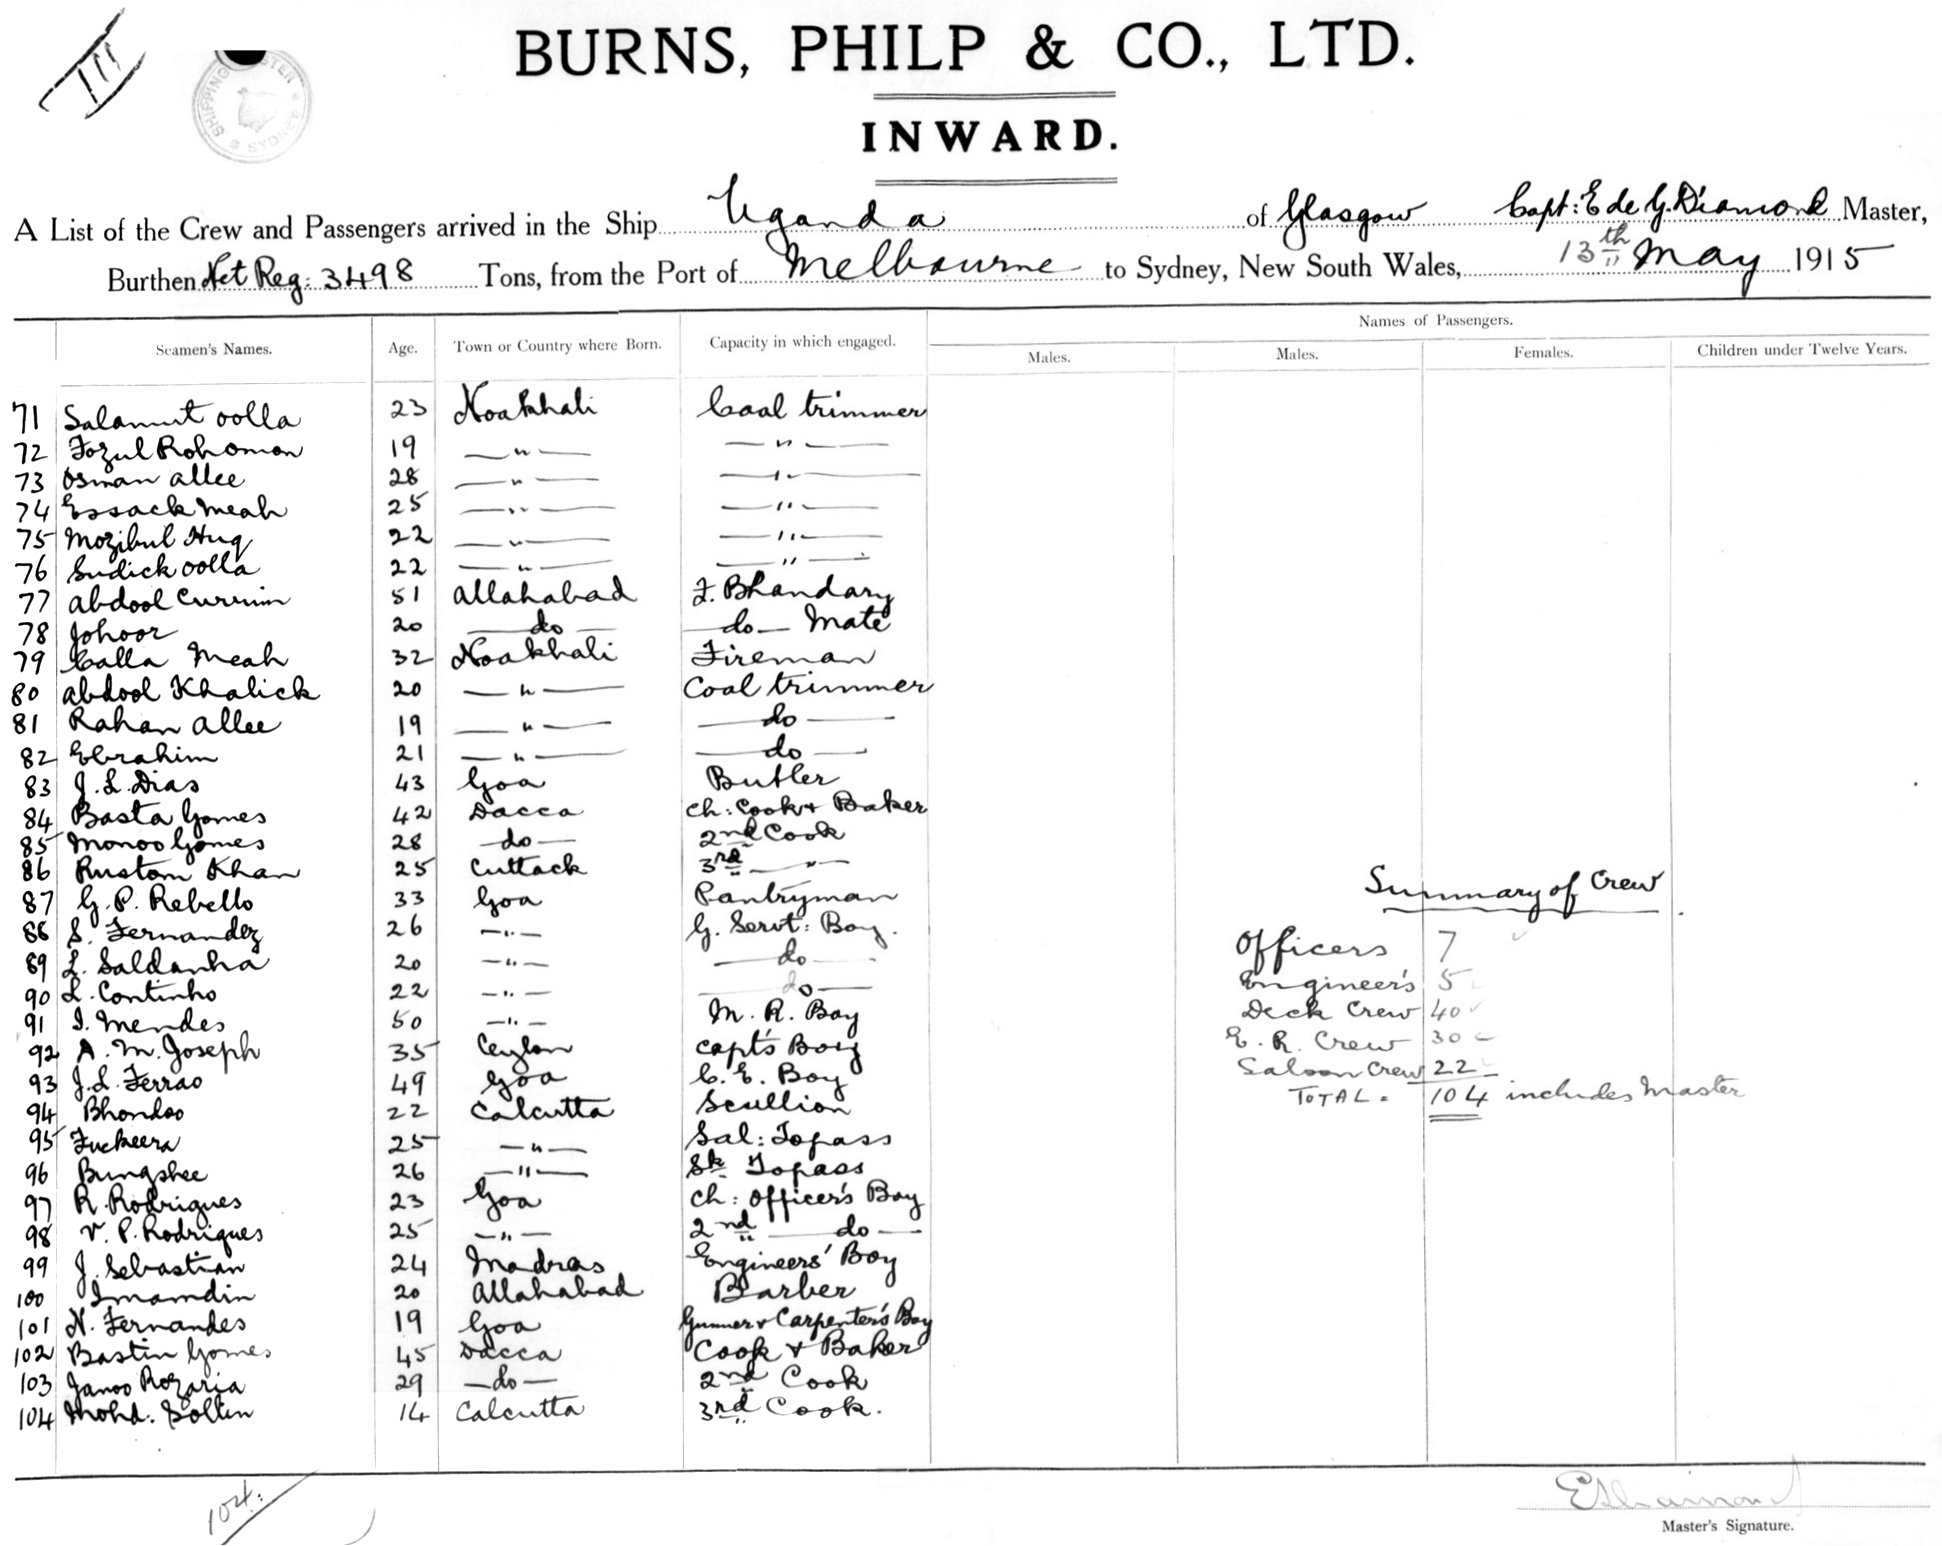 III
SHIPPING MASTER
* SYDNEY *
BURNS, PHILP & CO., LTD.
INWARD.
A List of the Crew and Passengers arrived in the Ship Uganda of Glasgow Capt: E de G. Diamond Master,
Burthen Net Reg: 3498 Tons, from the Port of Melbourne to Sydney, New South Wales, 13th May 1915
Names of Passengers.
Seamen's Names. Age. Town or Country where Born. Capacity in which engaged. Males. Males. Females. Children under Twelve Years.
71 Salamut oolla 23 Noakhali Coal trimmer
72 Fozul Rohoman 19 — " — — " —
73 Osman allee 28 — " — — " —
74 Essack Meah 25 — " — — " —
75 Mozibul Huq 22 — " — — " —
76 Sudick oolla 22 — " — — " —
77 Abdool Currim 51 Allahabad F. Bhandary
78 Johoor 20 — do — — do — Mate
79 Calla Meah 32 Noakhali Fireman
80 Abdool Khalick 20 — " — Coal trimmer
81 Rahan Allee 19 — " — — do —
82 Ebrahim 21 — " — — do —
83 J. L. Dias 43 Goa Butler
84 Basta Gomes 42 Dacca Ch: Cook & Baker
85 Monoo Gomes 28 — do — 2nd Cook
86 Rustom Khan 25 Cuttack 3rd — " —
87 G. P. Rebello 33 Goa Pantryman
88 S. Fernandez 26 — " — G. Servt: Boy.
89 L. Saldanha 20 — " — — do —
90 L. Continho 22 — " — — do —
91 I. Mendes 50 — " — M. R. Boy
92 A. M. Joseph 35 Ceylon Capt's Boy
93 J. L. Ferrao 49 Goa C. E. Boy
94 Bhondoo 22 Calcutta Scullion
95 Fuckeera 25 — " — Sal: Topass
96 Bungshee 26 — " — Sk Topass
97 R. Rodrigues 23 Goa Ch: Officer's Boy
98 V. P. Rodrigues 25 — " — 2nd — do —
99 J. Sebastian 24 Madras Engineers' Boy
100 Imamdin 20 Allahabad Barber
101 N. Fernandes 19 Goa Gunner & Carpenter's Boy
102 Bastin Gomes 45 Dacca Cook & Baker
103 Janoo Rozaria 29 — do — 2nd Cook
104 Mohd. Solten 14 Calcutta 3rd Cook.
Summary of Crew
Officers 7
Engineer's 5
Deck Crew 40
E. R. Crew 30
Saloon Crew 22
TOTAL. 104 includes Master
104.
E Diamond
Master's Signature.